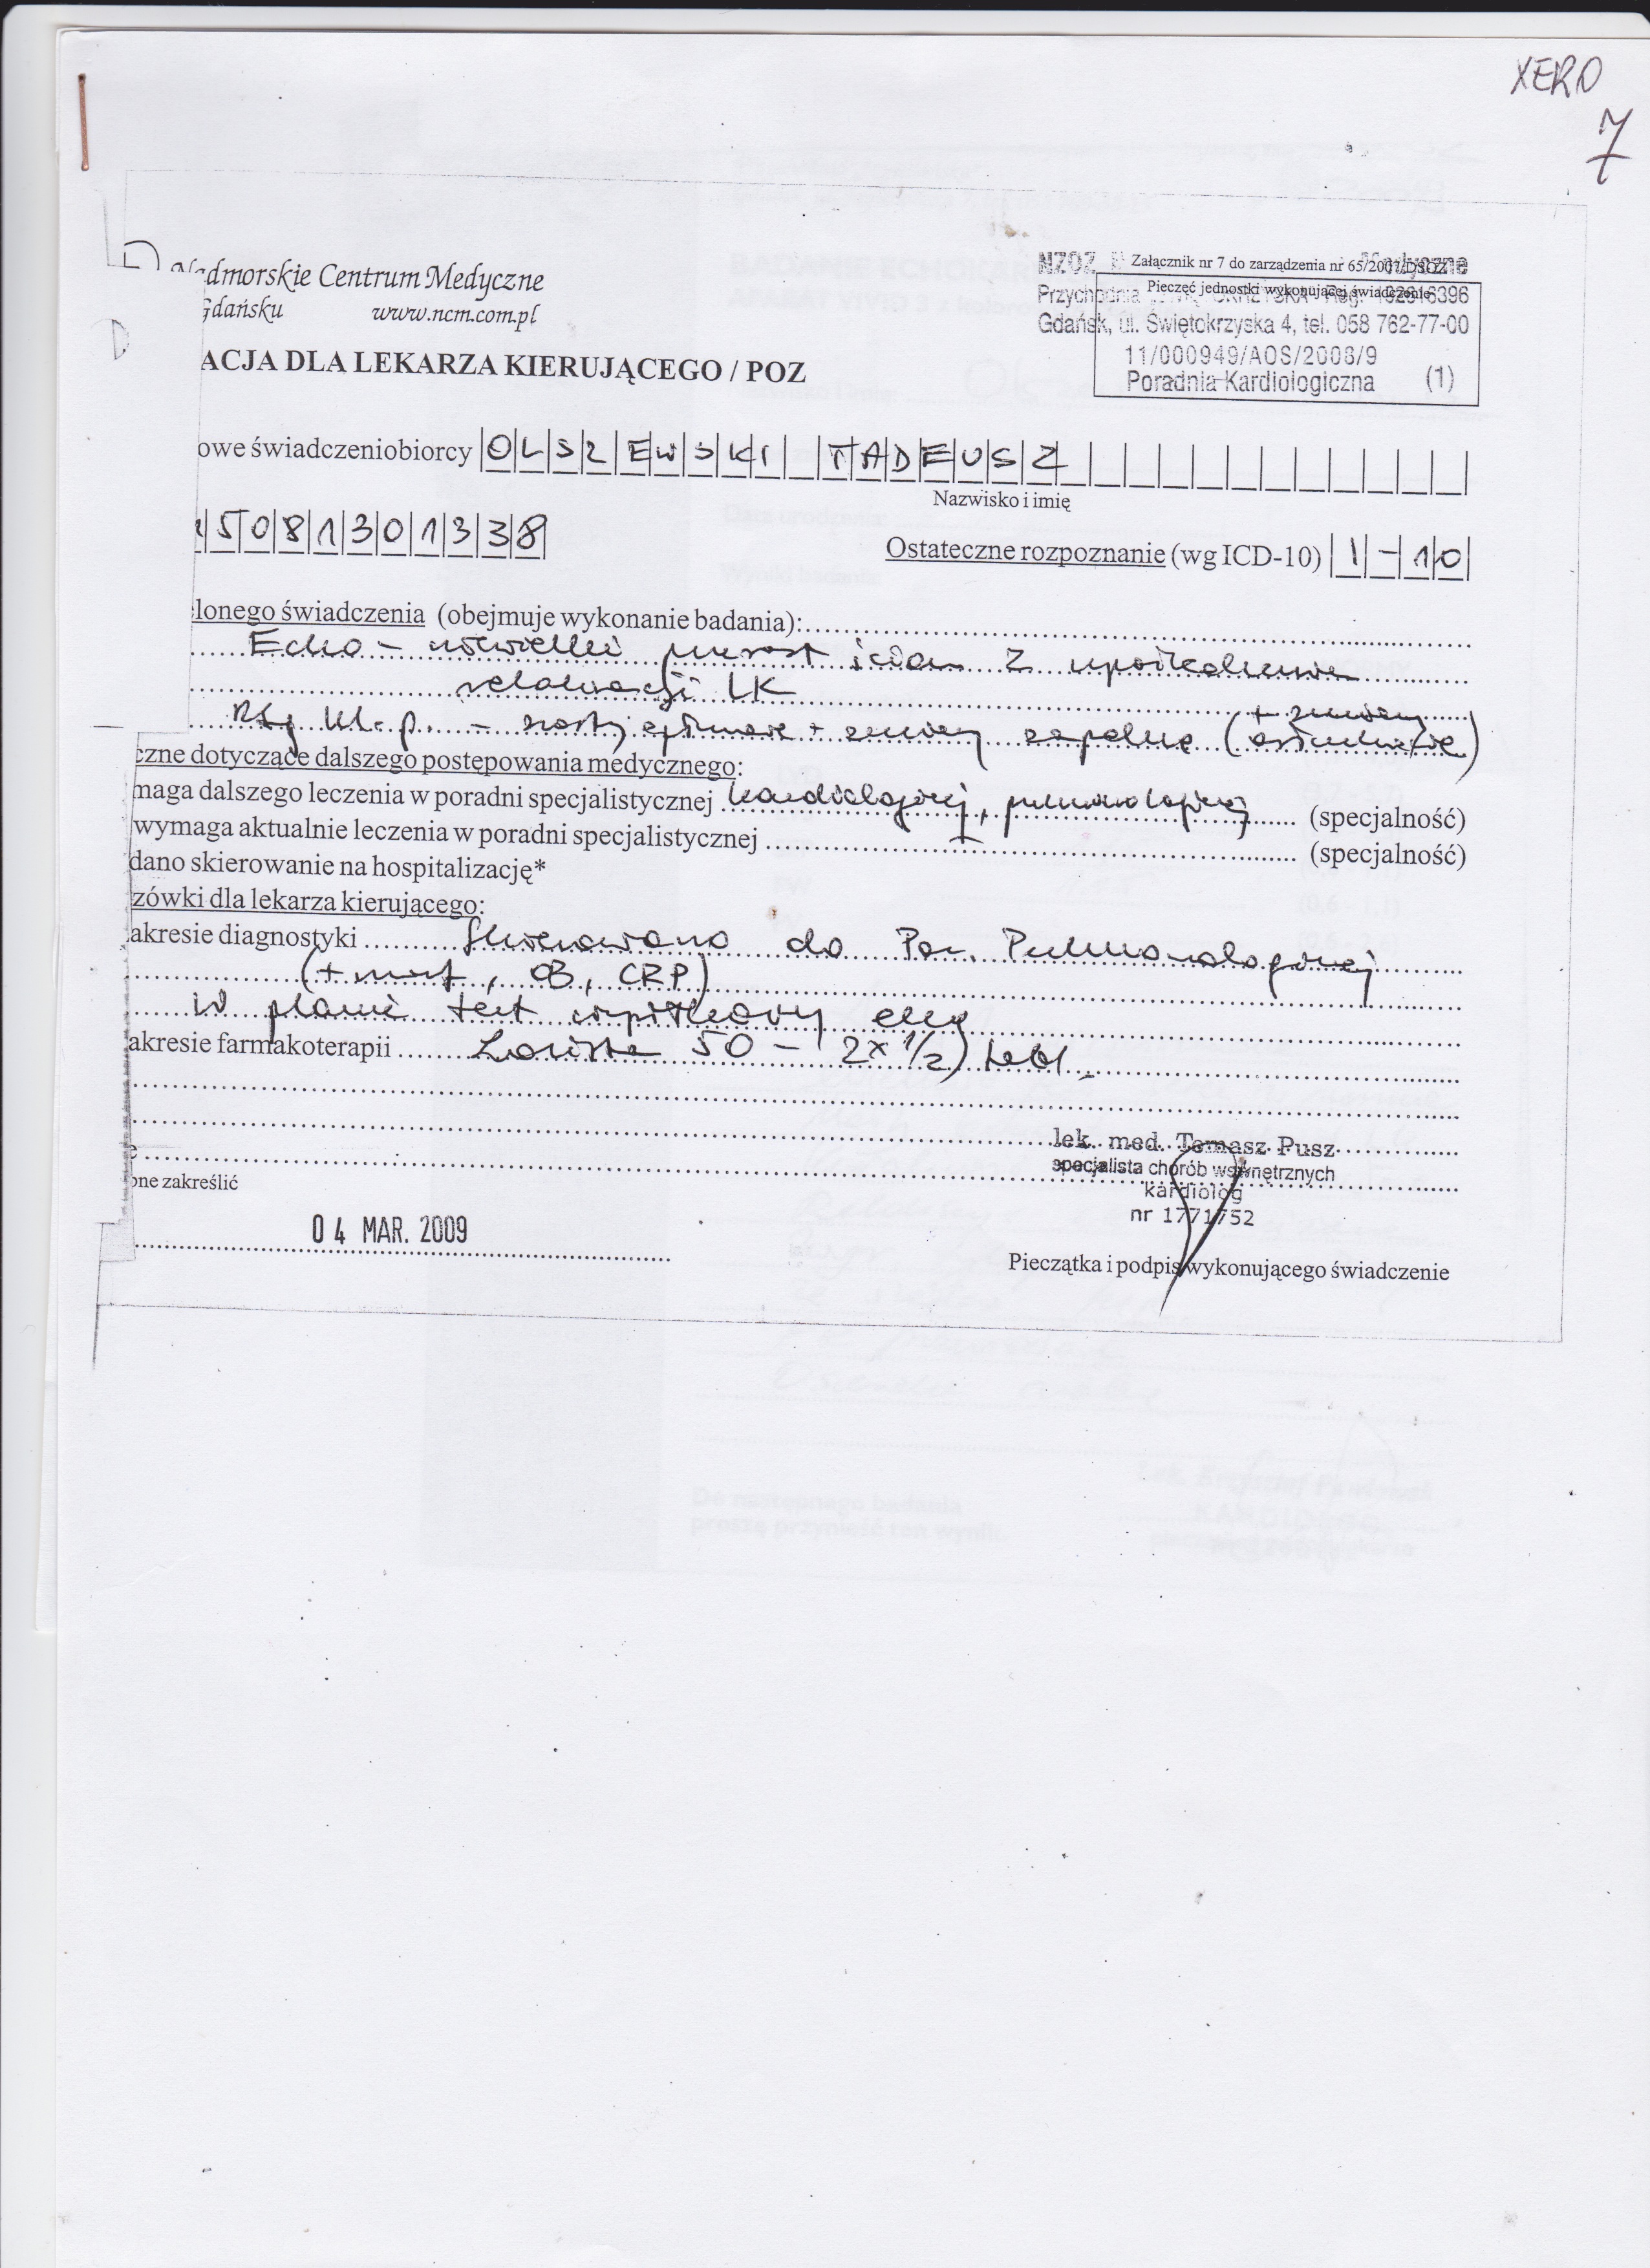 XERO
7
Nadmorskie Centrum Medyczne
Gdańsku www.ncm.com.pl
NZOZ Załącznik nr 7 do zarządzenia nr 65/2007/DSOZ Medyczne
Pieczęć jednostki wykonującej świadczenie
Przychodnia 6396
Gdańsk, ul. Świętokrzyska 4, tel. 058 762-77-00
11/000949/AOS/2008/9
Poradnia Kardiologiczna (1)
ACJA DLA LEKARZA KIERUJĄCEGO / POZ
owe świadczeniobiorcy OLSZEWSKI TADEUSZ
Nazwisko i imię
5081301338
Ostateczne rozpoznanie (wg ICD-10) I-10
lonego świadczenia (obejmuje wykonanie badania):
Echo - niewielki przerost ścian z upośledzeniem
relaksacji LK
Rtg kl. p. - + zmiany zapalne (+ zmiany
czne dotyczące dalszego postępowania medycznego:
maga dalszego leczenia w poradni specjalistycznej kardiologicznej, pulmonologicznej (specjalność)
wymaga aktualnie leczenia w poradni specjalistycznej (specjalność)
dano skierowanie na hospitalizację*
zówki dla lekarza kierującego:
akresie diagnostyki Skierowano do Por. Pulmonologicznej
(+ morf, OB, CRP)
W planie test wysiłkowy ekg
akresie farmakoterapii Lorista 50 - 2x 1/2 tabl.
e
one zakreślić
lek. med. Tomasz Pusz
specjalista chorób wewnętrznych
kardiolog
nr 1771752
04 MAR. 2009
Pieczątka i podpis wykonującego świadczenie
Do następnego badania
proszę przynieść ten wynik